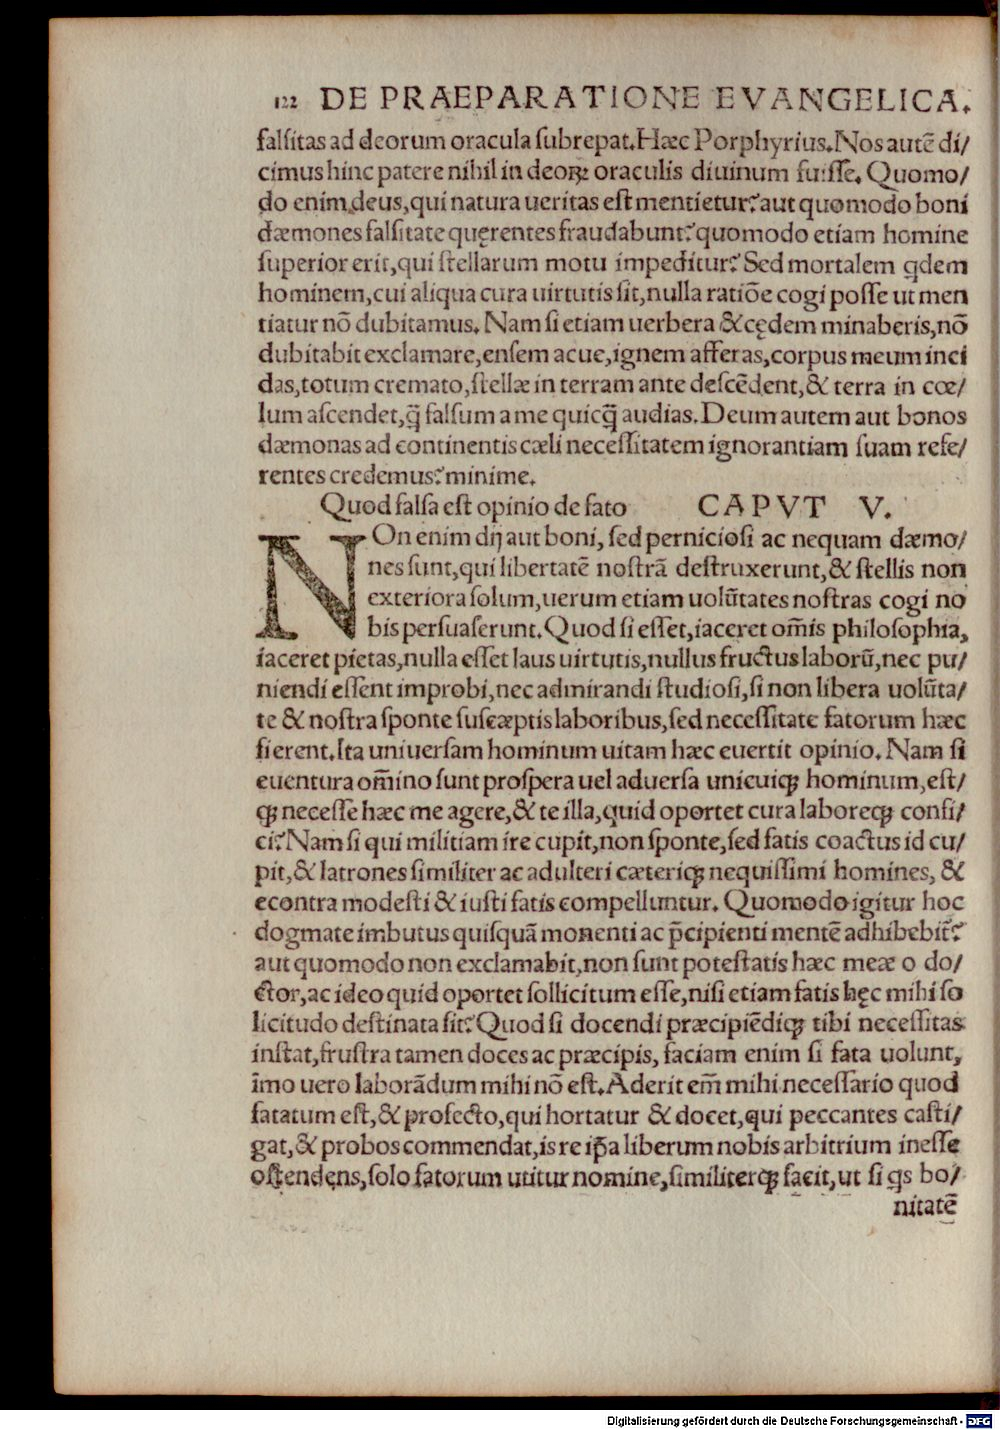 122 DE PRAEPARATIONE EVANGELICA.
falsitas ad deorum oracula subrepat. Hæc Porphyrius. Nos autē di/
cimus hinc patere nihil in deoꝝ oraculis diuinum fuisse. Quomo/
do enim deus, qui natura ueritas est mentietur? aut quomodo boni
dæmones falsitate quęrentes fraudabunt? quomodo etiam homine
superior erit, qui stellarum motu impeditur? Sed mortalem qdem
hominem, cui aliqua cura uirtutis sit, nulla ratiōe cogi posse ut men
tiatur nō dubitamus. Nam si etiam uerbera & cędem minaberis, nō
dubitabit exclamare, ensem acue, ignem afferas, corpus meum inci
das, totum cremato, stellæ in terram ante descēdent, & terra in cœ/
lum ascendet, q̄ falsum a me quicq̄ audias. Deum autem aut bonos
dæmonas ad continentis cæli necessitatem ignorantiam suam refe/
rentes credemus? minime.
Quod falsa est opinio de fato CAPVT V.
NOn enim dij aut boni, sed perniciosi ac nequam dæmo/
nes sunt, qui libertatē nostrā destruxerunt, & stellis non
exteriora solum, uerum etiam uolūtates nostras cogi no
bis persuaserunt. Quod si esset, iaceret om̄is philosophia,
iaceret pietas, nulla esset laus uirtutis, nullus fructus laborū, nec pu/
niendi essent improbi, nec admirandi studiosi, si non libera uolūta/
te & nostra sponte susceptis laboribus, sed necessitate fatorum hæc
fierent. Ita uniuersam hominum uitam hæc euertit opinio. Nam si
euentura om̄ino sunt prospera uel aduersa unicuiqꝫ hominum, est/
qꝫ necesse hæc me agere, & te illa, quid oportet cura laboreqꝫ confi/
ci? Nam si qui militiam ire cupit, non sponte, sed fatis coactus id cu/
pit, & latrones similiter ac adulteri cæteriqꝫ nequissimi homines, &
econtra modesti & iusti fatis compelluntur. Quomodo igitur hoc
dogmate imbutus quisquā monenti ac p̄cipienti mentē adhibebit̄?
aut quomodo non exclamabit, non sunt potestatis hæc meæ o do/
ctor, ac ideo quid oportet sollicitum esse, nisi etiam fatis hęc mihi so
licitudo destinata sit? Quod si docendi præcipiēdiqꝫ tibi necessitas
instat, frustra tamen doces ac præcipis, faciam enim si fata uolunt,
īmo uero laborādum mihi nō est. Aderit em̄ mihi necessario quod
fatatum est, & profecto, qui hortatur & docet, qui peccantes casti/
gat, & probos commendat, is re ip̄a liberum nobis arbitrium inesse
ostendens, solo fatorum utitur nomine, similiterqꝫ facit, ut si qs bo/
nitatē
Digitalisierung gefördert durch die Deutsche Forschungsgemeinschaft - DFG